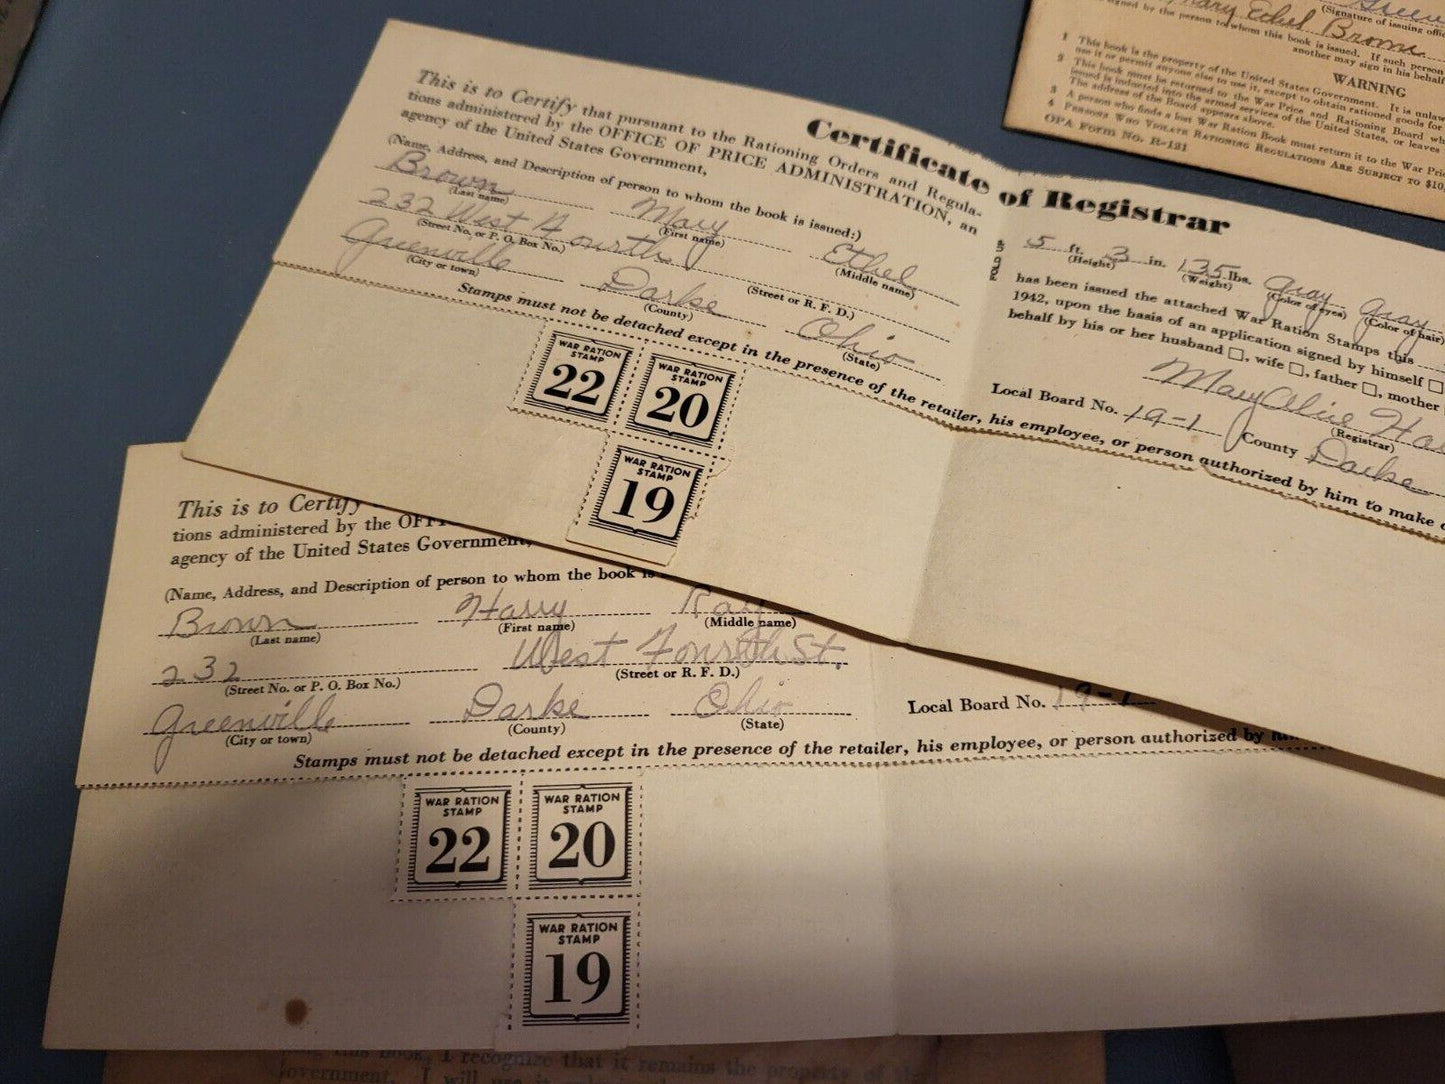 Mary Ethel Brown
(Signature of issuing offic
signed by the person to whom this book is issued. If such person
another may sign in his behalf
WARNING
1 This book is the property of the United States Government. It is unlaw
use it or permit anyone else to use it, except to obtain rationed goods for
2 This book must be returned to the War Price and Rationing Board wh
issued is inducted into the armed services of the United States, or leaves
The address of the Board appears above.
3 A person who finds a lost War Ration Book must return it to the War Pric
4 PERSONS WHO VIOLATE RATIONING REGULATIONS ARE SUBJECT TO $10,
OPA FORM NO. R-121
Certificate of Registrar
This is to Certify that pursuant to the Rationing Orders and Regula-
tions administered by the OFFICE OF PRICE ADMINISTRATION, an
agency of the United States Government,
(Name, Address, and Description of person to whom the book is issued:)
Brown Mary Ethel
(Last name) (First name) (Middle name)
232 West Fourth
(Street No. or P. O. Box No.) (Street or R. F. D.)
Greenville Darke Ohio
(City or town) (County) (State)
FOLD UP
5 ft. 3 in. 135 lbs. Gray Gray
(Height) (Weight) (Color of eyes) (Color of hair)
has been issued the attached War Ration Stamps this
1942, upon the basis of an application signed by himself
behalf by his or her husband □, wife □, father □, mother
Mary Alice
(Registrar)
Local Board No. 19-1 County Darke
Stamps must not be detached except in the presence of the retailer, his employee, or person authorized by him to make
WAR RATION STAMP 22
WAR RATION STAMP 20
WAR RATION STAMP 19
This is to Certify
tions administered by the OFFI
agency of the United States Government,
(Name, Address, and Description of person to whom the book is
Brown Harry Ray
(Last name) (First name) (Middle name)
232 West Fourth St.
(Street No. or P. O. Box No.) (Street or R. F. D.)
Greenville Darke Ohio
(City or town) (County) (State)
Local Board No. 19-1
Stamps must not be detached except in the presence of the retailer, his employee, or person authorized by
WAR RATION STAMP 22
WAR RATION STAMP 20
WAR RATION STAMP 19
this book, I recognize that it remains the property of the
overnment. I will use it